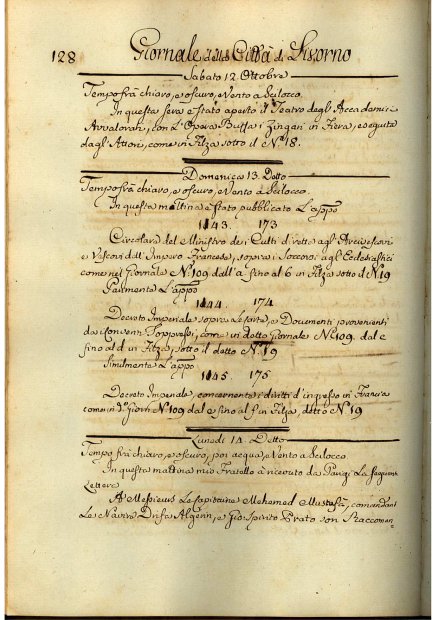 128 Giornale della Città di Livorno
Sabato 12. Ottobre
Tempo frà chiaro, e oscuro, e Vento a Scilocco.
In questa sera è stato aperto il Teatro degl'Accademici
Avvalorati, con L'Opera Buffa i Zingari in Fiera, eseguita
dagl'Attori, come in Filza sotto il N.º 18.
Domenica 13. Detto
Tempo frà chiaro, e oscuro, e Vento a Scilocco.
In questa mattina è stato pubblicato L'appo
1143. 173
Circolare del Ministro dei Culti diretta agl'Arcivescovi
e Vescovi dell'Impero Francese, sopra i Soccorsi agl'Eclesiastici
come nel Giornale N.º 109 dall'a fino al b in Filza sotto il N.º 19
Parimente L'appo
1144. 174
Decreto Imperiale sopra Le Carte, e Documenti provenienti
da Conventi Soppressi, come in detto Giornale N.º 109. dal c
fino al d in Filza, sotto il detto N.º 19
Similmente L'appo
1145. 175
Decreto Imperiale, concernente i diritti d'ingresso in Francia
come in d.º Giorn.le N.º 109 dal e fino al f in Filza detto N.º 19
Lunedi 14. Detto
Tempo frà chiaro, e oscuro, poi acqua, e Vento a Scilocco.
In questa mattina mio Fratello à ricevuto da Parigi La seguente
Lettera
A Messieurs Le Capitaine Mehemed Mustafà, comandant
Le Navire Algerin, e Gio: Spirito Prato son Raccomen,